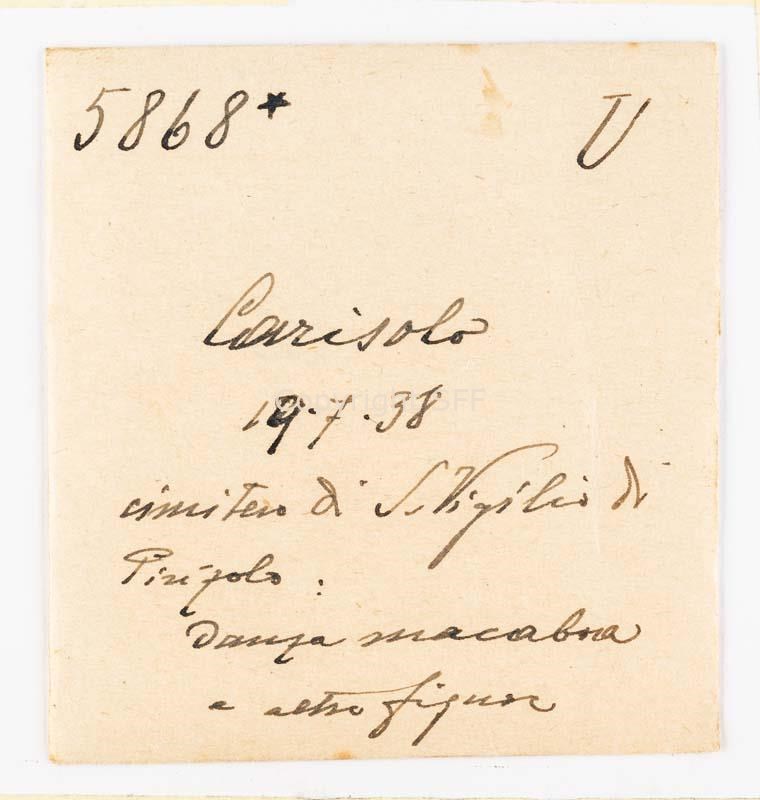 5868* U
Carisolo
19.7.38
Copyright SFF
cimitero di S. Vigilio di
Pinzolo :
Danza macabra
e altre figure